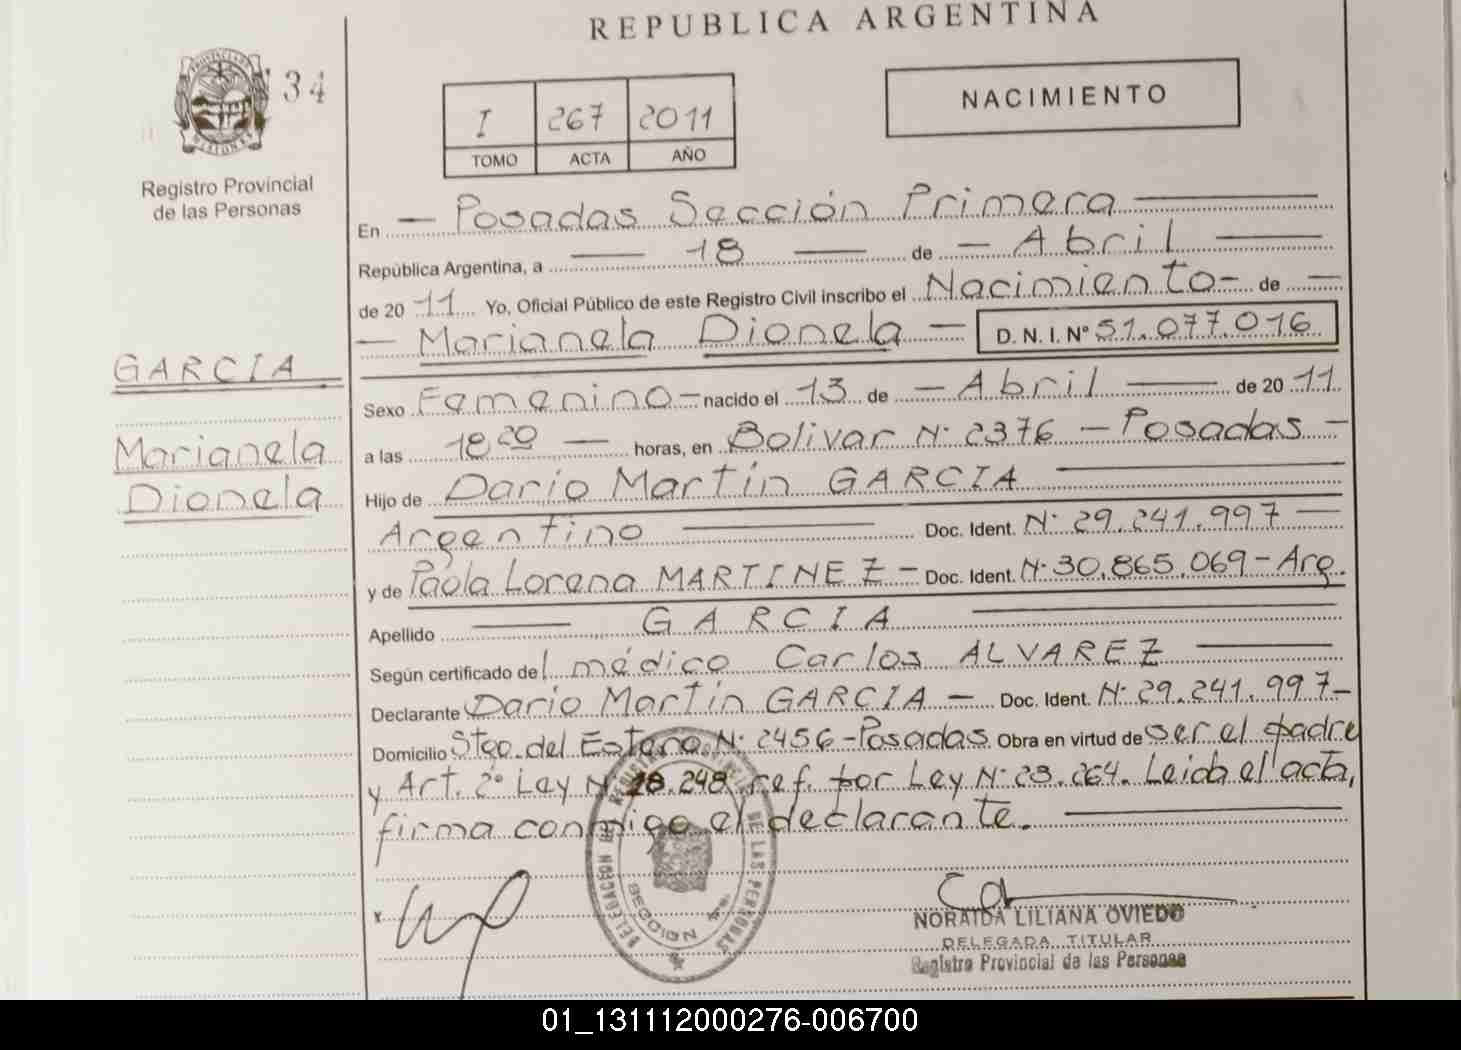 REPUBLICA ARGENTINA
34
I 267 2011
TOMO ACTA AÑO
NACIMIENTO
PROVINCIA DE MISIONES
Registro Provincial
de las Personas
En — Posadas Sección Primera —
República Argentina, a — 18 — de — Abril —
de 2011 Yo, Oficial Público de este Registro Civil inscribo el Nacimiento - de —
— Marianela Dionela — D. N. I. Nº 51.077.016
GARCIA
Marianela
Dionela
Sexo Femenino - nacido el 13 de — Abril — de 2011
a las 18,20 — horas, en Bolivar N· 2376 - Posadas -
Hijo de Dario Martín GARCIA —
Argentino — Doc. Ident. N· 29.241.997 —
y de Paola Lorena MARTINEZ - Doc. Ident. N· 30.865.069 - Arg.
Apellido — GARCIA —
Según certificado del médico Carlos ALVAREZ —
Declarante Dario Martín GARCIA — Doc. Ident. N· 29.241.997 -
Domicilio Stgo. del Estero N· 2456 - Posadas Obra en virtud de ser el padre
y Art. 2º Ley N· 18.248 ref. por Ley N· 23.264. Leida el acta,
firma conmigo el declarante. —
DELEGACION REGISTRO PROVINCIAL DE LAS PERSONAS
SECCION 1ra.
x
NORAIDA LILIANA OVIEDO
DELEGADA TITULAR
Registro Provincial de las Personas
01_131112000276-006700